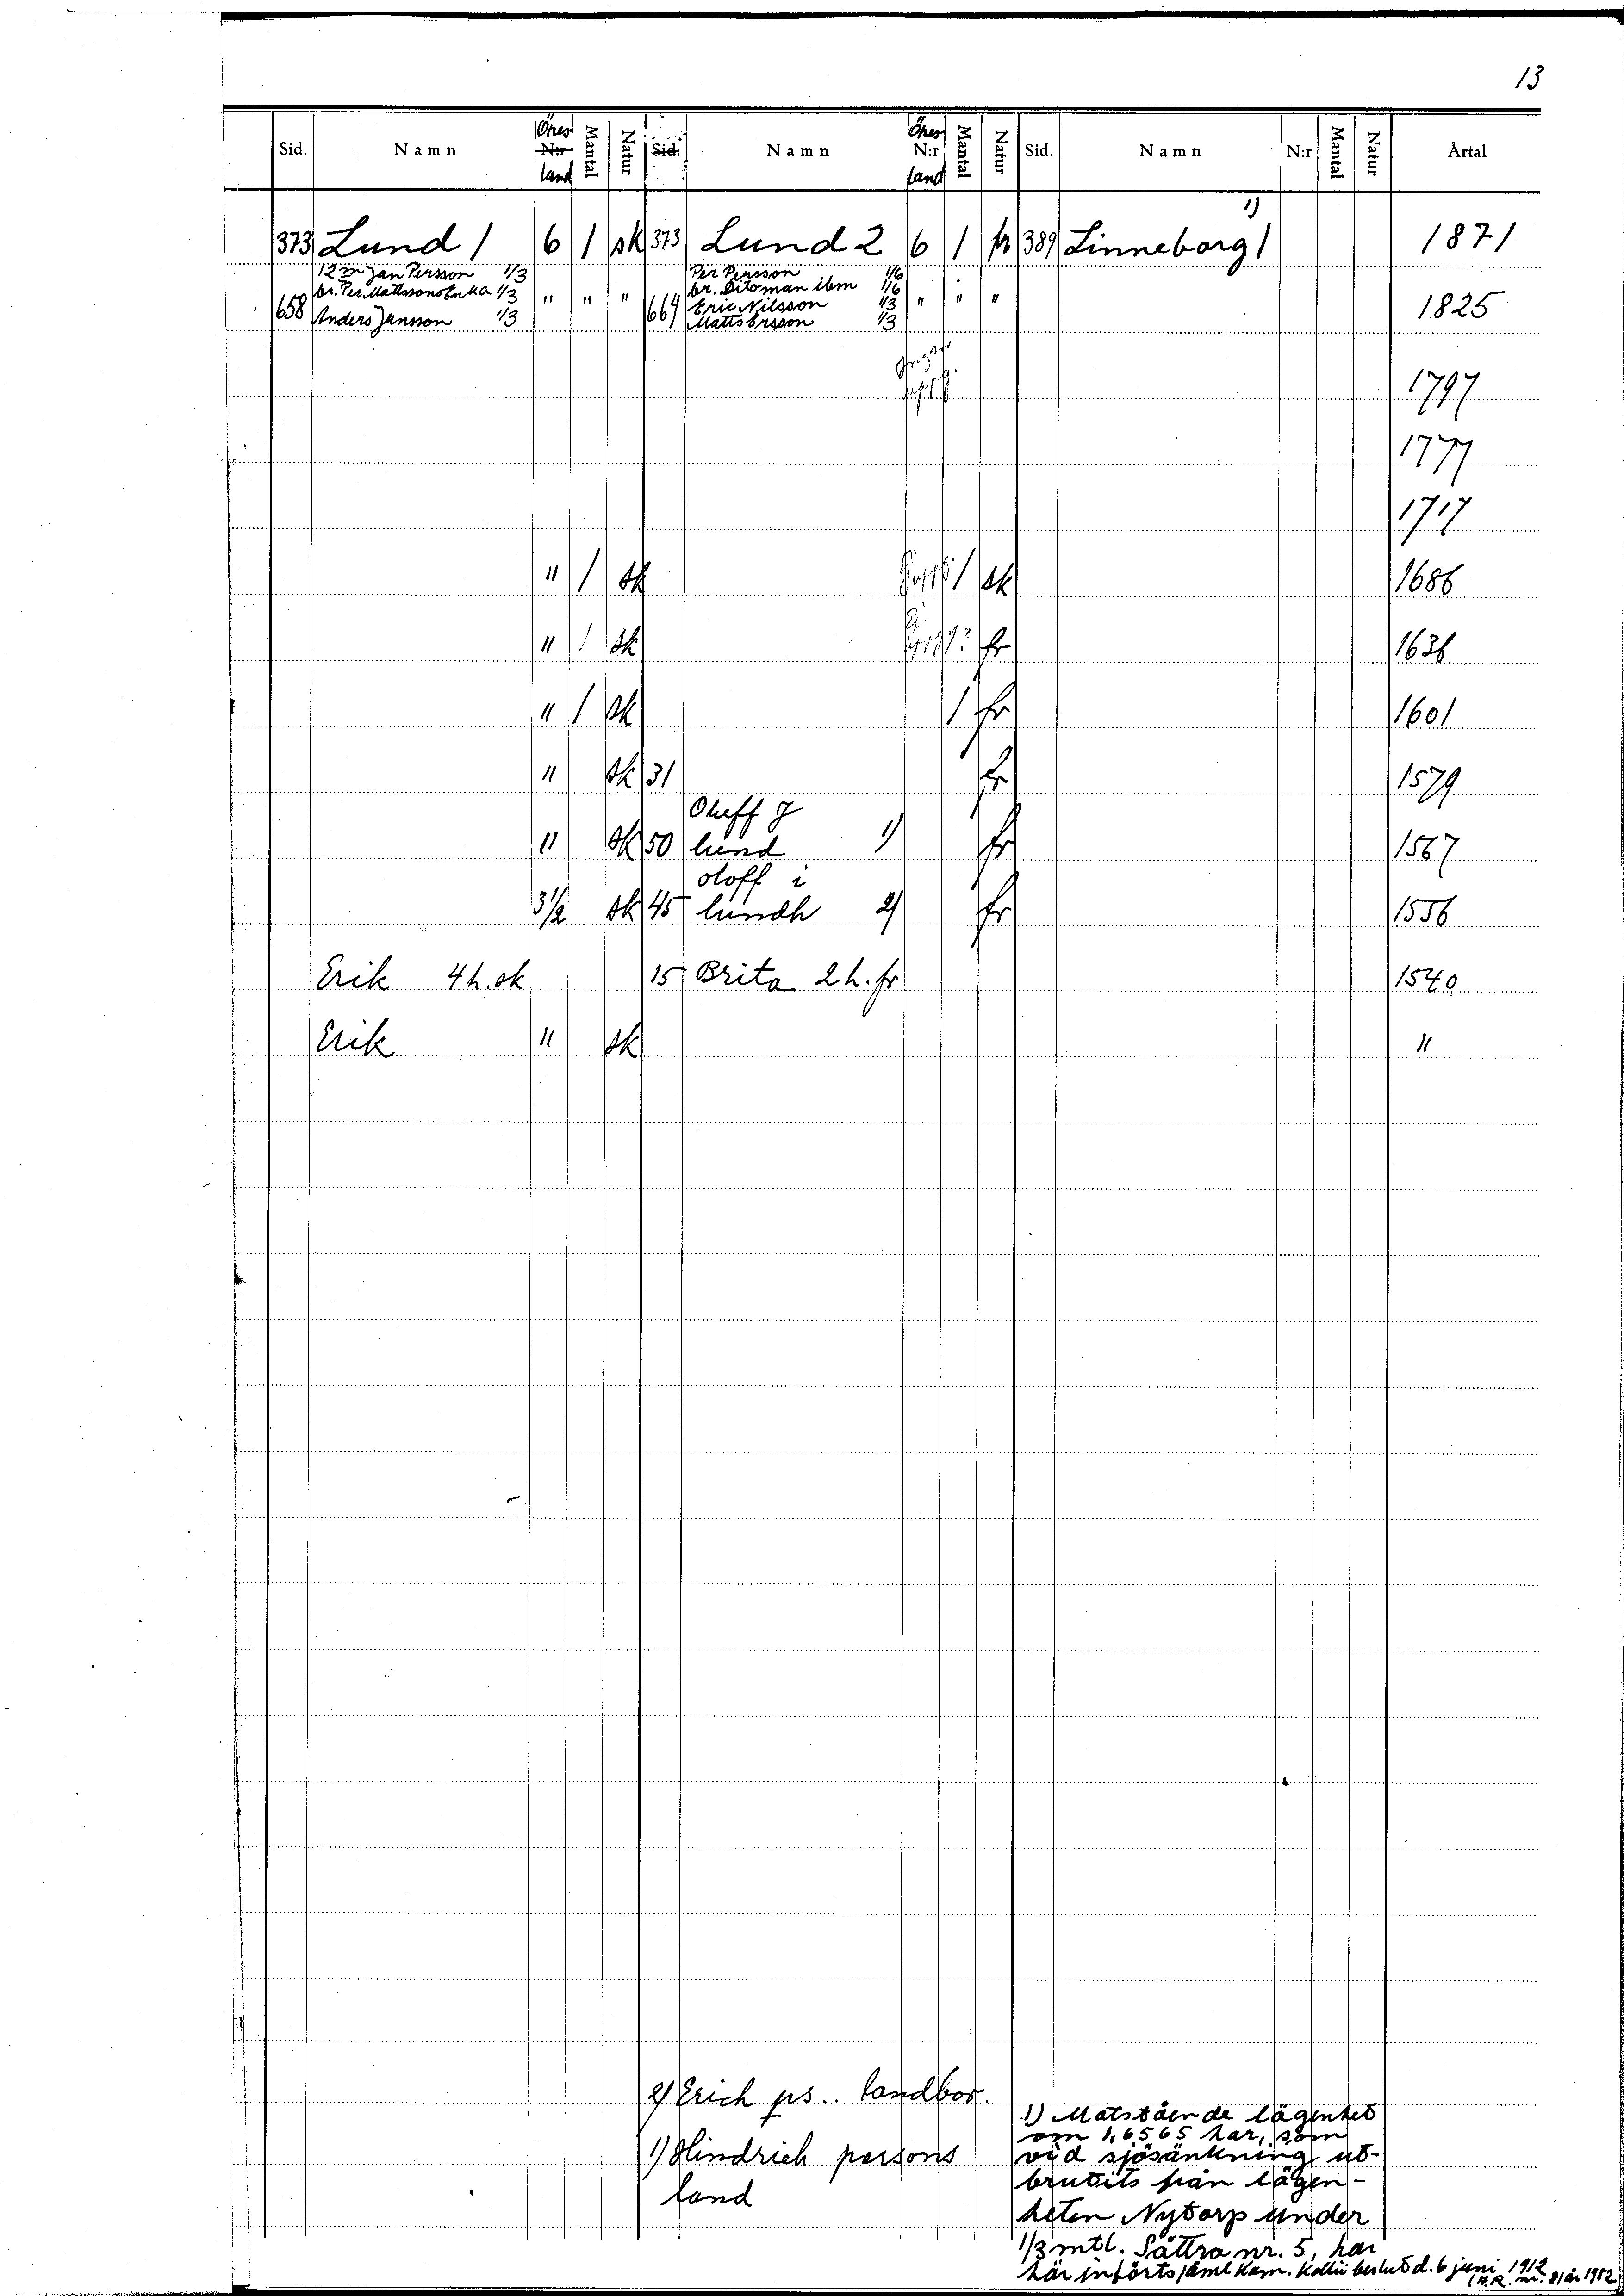 13
Sid. Namn Öres N:r land Mantal Natur Sid. Namn Öres N:r land Mantal Natur Sid. Namn N:r Mantal Natur Årtal
373 Lund 1 6 1 sk 373 Lund 2 6 1 fr 389 Linneborg 1 1) 1871
12 m Jan Persson 1/3 Per Persson 1/6
br. Per Mattssons Enka 1/3 " " " br. Ditoman ibm 1/6 " " "
658 Anders Jansson 1/3 664 Eric Nilsson 1/3 1825
Matts Ersson 1/3
1797
1777
1717
" 1 sk 1 sk 1686
" 1 sk fr 1636
" 1 sk 1 fr 1601
" sk 31 fr 1579
Oluff J
" sk 50 lund 1) fr 1567
oloff i
3 1/2 sk 45 lundh 2) fr 1556
Erik 4 h. sk 15 Brita 2 h. fr 1540
Erik " sk "
2) Erich ps.. landbor.
1) Hindrich persons
land
1) Motstående lägenhet
om 1,6565 har, som
vid sjösänkning ut-
brutits från lägen-
heten Nytorp under
1/3 mtl. Sättra nr. 5, har
här införts jäml. Kam. Kollii beslut d. 6 juni 1912